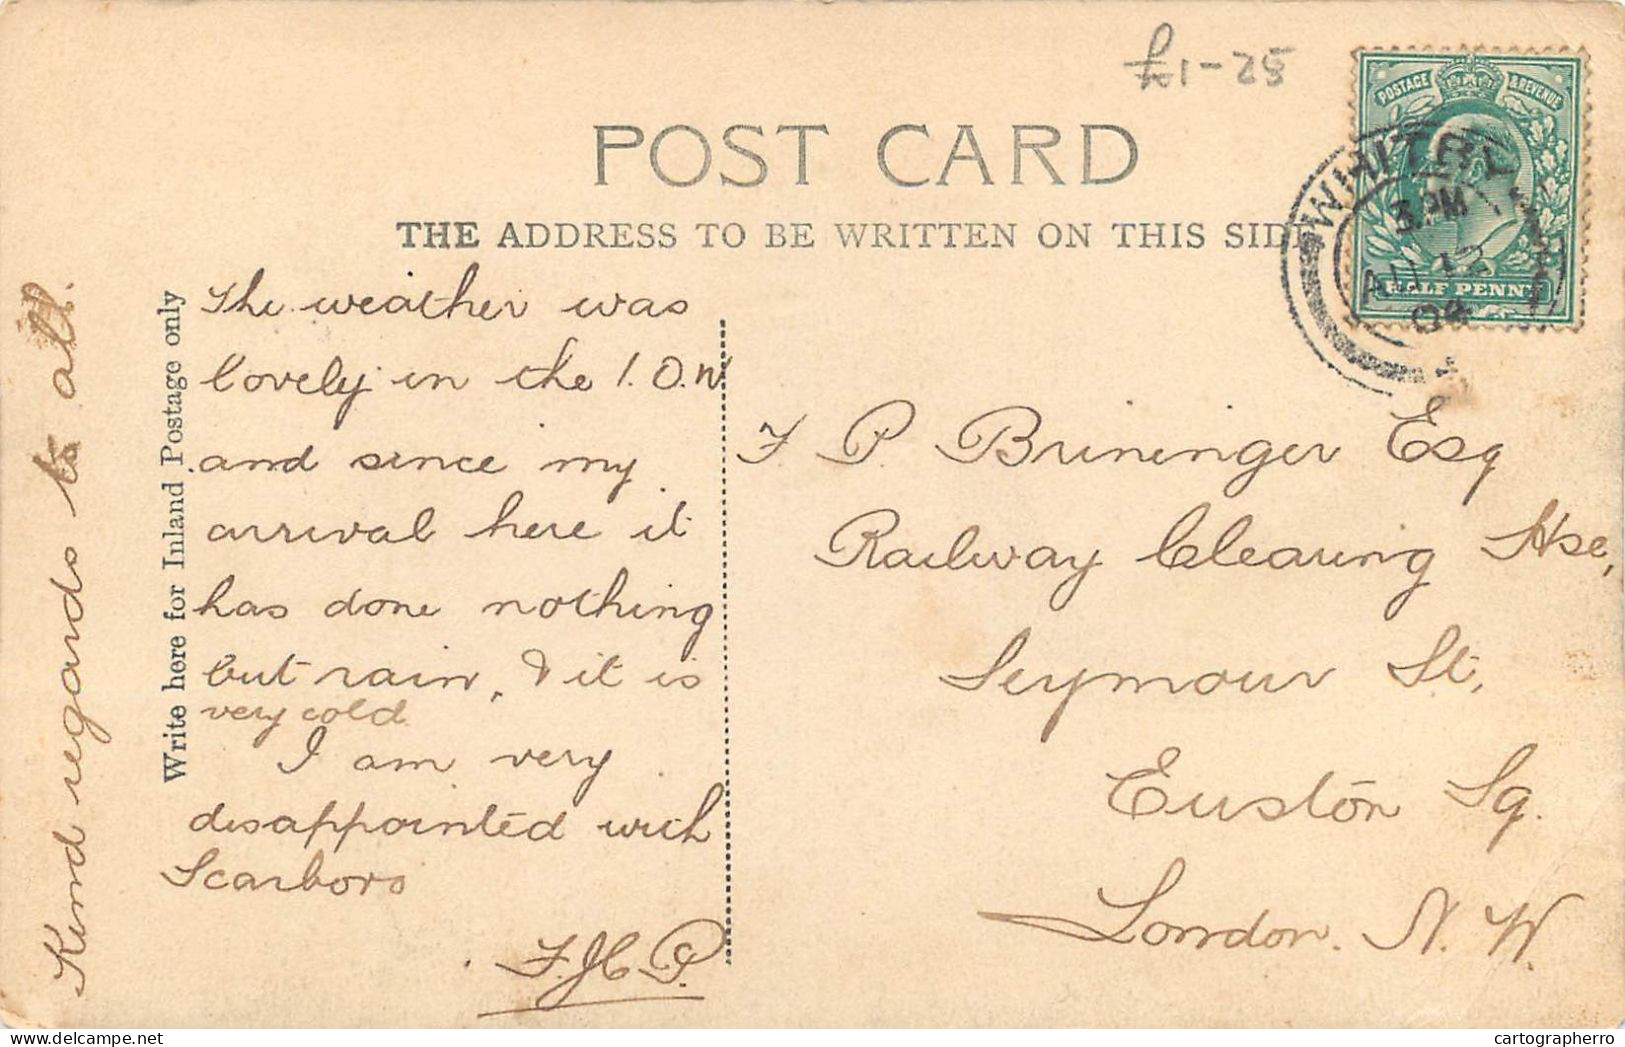 £1-25
POST CARD
THE ADDRESS TO BE WRITTEN ON THIS SIDE
POSTAGE & REVENUE
HALF PENNY
WHITBY
3. PM
AU 12
04
Write here for Inland Postage only
The weather was
lovely in the I.O.W
and since my
arrival here it
has done nothing
but rain, & it is
very cold
I am very
disappointed with
Scarboro
F. P. Brininger Esq
Railway Clearing Hse,
Seymour St,
Euston Sq.
London. N. W.
Kind regards to all.
cartographerro